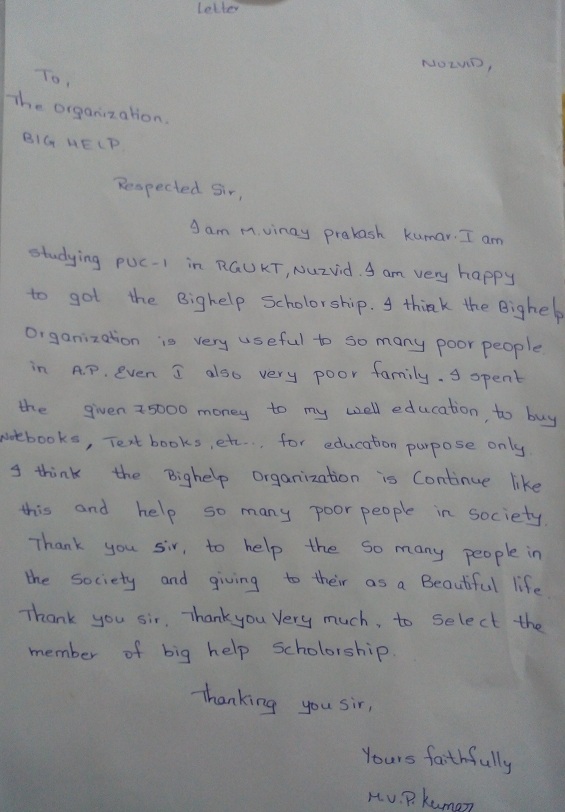 Letter
NUZVID,
To,
The Organization.
BIG HELP.
Respected Sir,
I am M.vinay prakash kumar. I am
studying PUC-1 in RGUKT, Nuzvid. I am very happy
to got the Bighelp Scholorship. I think the Bighelp
Organization is very useful to so many poor people
in A.P. Even I also very poor family. I spent
the given ₹5000 money to my well education, to buy
Notebooks, Text books, etc... for education purpose only.
I think the Bighelp Organization is Continue like
this and help so many poor people in society.
Thank you sir, to help the so many people in
the society and giving to their as a Beautiful life.
Thank you sir, Thankyou Very much, to select the
member of big help scholorship.
Thanking you sir,
Yours faithfully
M.V.P. kumar